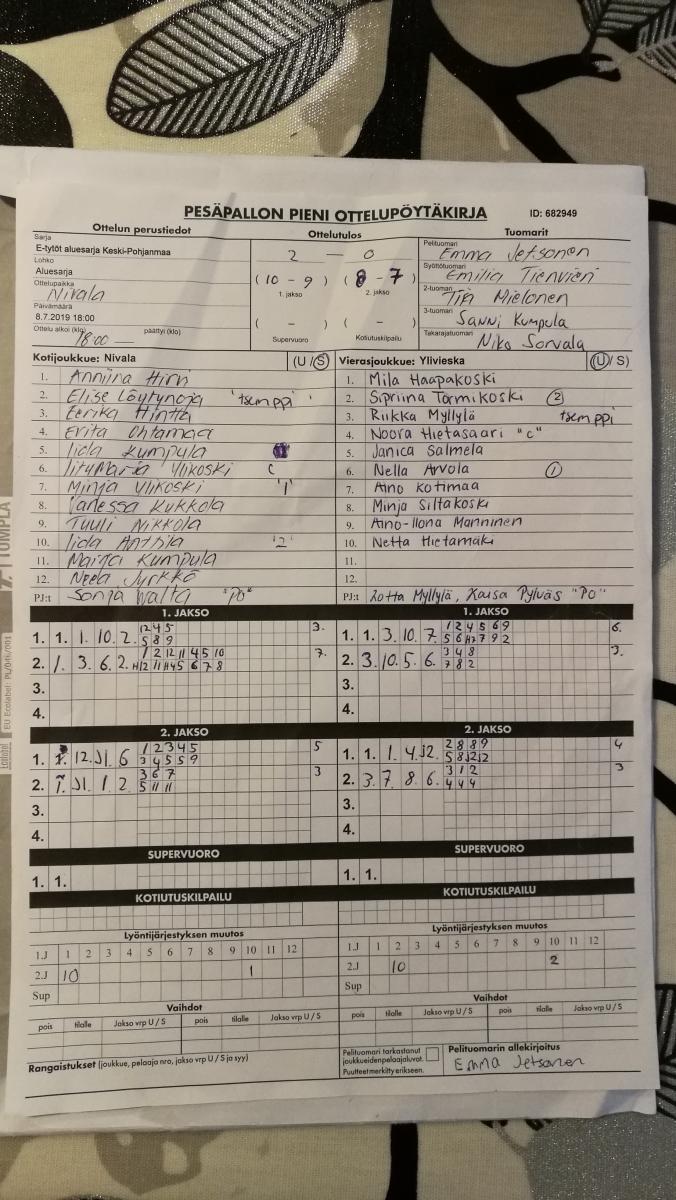 PESÄPALLON PIENI OTTELUPÖYTÄKIRJA ID: 682949
Ottelun perustiedot
Sarja
E-tytöt aluesarja Keski-Pohjanmaa
Lohko
Aluesarja
Ottelupaikka
Nivala
Päivämäärä
8.7.2019 18:00
Ottelu alkoi (klo) päättyi (klo)
18:00 —
Ottelutulos
2 — 0
(10 - 9) (8 - 7)
1. jakso 2. jakso
( - ) ( - )
Supervuoro Kotiutuskilpailu
Tuomarit
Pelituomari
Emma Jetsonen
Syöttötuomari
Emilia
2-tuomari
Mielonen
3-tuomari
Sanni Kumpula
Takarajatuomari
Niko Sorvala
Kotijoukkue: Nivala (U/S)
1. Anniina Hirvi
2. Elise Löytynoja 'tsemppi'
3. Eerika Hintta
4. Erita Ohtamaa
5. Iida Kumpula
6. Ylikoski C
7. Minja Ylikoski '1'
8. Vanessa Kukkola
9. Tuuli Nikkola
10. Iida Anthla '2'
11. Kumpula
12. Neela Jyrkkö
PJ:t Sonja Walta "PO"
Vierasjoukkue: Ylivieska (U/S)
1. Mila Haapakoski
2. Sipriina Tormikoski 2
3. Riikka Myllylä tsemppi
4. Noora Hietasaari "C"
5. Janica Salmela
6. Nella Arvola 1
7. Aino Kotimaa
8. Minja Siltakoski
9. Aino-Ilona Manninen
10. Netta Hietamäki
11.
12.
PJ:t Lotta Myllylä, Kaisa Pylväs "PO"
1. JAKSO
1. 1. 1. 10. 2. 1 2 4 5 3.
5 8 9
2. 1. 3. 6. 2. 1 2 12 11 4 5 10 7.
3.
4.
1. JAKSO
1. 1. 1. 3. 10. 7. 1 2 4 5 6 9 6.
2. 3. 10. 5. 6. 3 4 8 3.
7 8 2
3.
4.
2. JAKSO
1. 12. 11. 6 1 2 3 4 5 5
3 4 5 5 9
2. 11. 1. 2. 3 6 7 3
5 11 11
3.
4.
2. JAKSO
1. 1. 1. 4. 12. 2 8 8 9 4
5 8 12 12
2. 3. 7. 8. 6. 3 1 2 3
4 4 4
3.
4.
SUPERVUORO
1. 1.
SUPERVUORO
1. 1.
KOTIUTUSKILPAILU
KOTIUTUSKILPAILU
Lyöntijärjestyksen muutos
1.J 1 2 3 4 5 6 7 8 9 10 11 12
2.J 10 1
Sup
Lyöntijärjestyksen muutos
1.J 1 2 3 4 5 6 7 8 9 10 11 12
2.J 10 2
Sup
Vaihdot
pois tilalle Jakso vrp U / S pois tilalle Jakso vrp U / S
Vaihdot
pois tilalle Jakso vrp U / S pois tilalle Jakso vrp U / S
Rangaistukset (joukkue, pelaaja nro, jakso vrp U / S ja syy)
Pelituomari tarkastanut
joukkueiden pelaajaluvat.
Puutteet merkitty erikseen.
Pelituomarin allekirjoitus
Emma Jetsonen
EU Ecolabel: PL/046/001